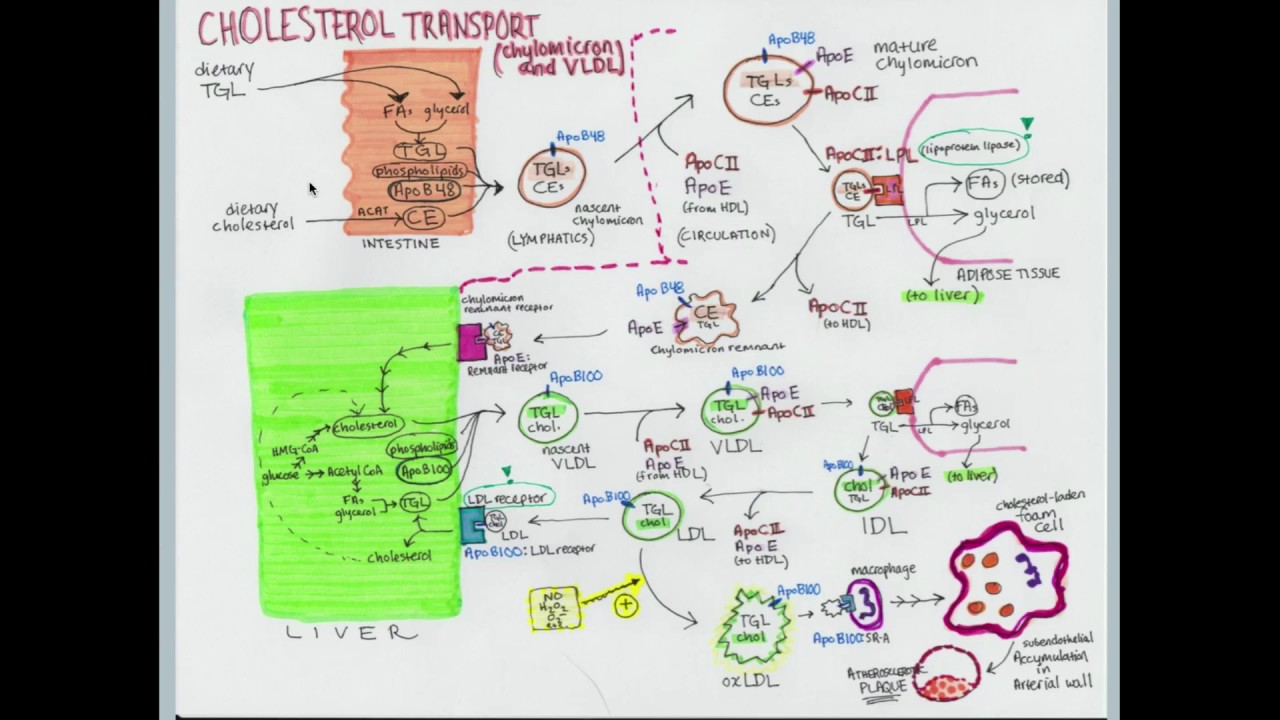 CHOLESTEROL TRANSPORT
(chylomicron
and VLDL)
dietary
TGL
FAs glycerol
TGL
phospholipids
ApoB48
dietary
cholesterol
ACAT
CE
INTESTINE
ApoB48
TGLs
CEs
nascent
chylomicron
(LYMPHATICS)
ApoCII
ApoE
(from HDL)
(CIRCULATION)
ApoB48
ApoE
ApoCII
TGLs
CEs
mature
chylomicron
ApoCII:LPL
(lipoprotein lipase)
TGLs
CE
LPL
TGL
LPL
FAs (stored)
glycerol
ADIPOSE TISSUE
(to liver)
ApoCII
(to HDL)
ApoB48
ApoE
CE
TGL
Chylomicron remnant
chylomicron
remnant receptor
CE
TGL
ApoE:
Remnant receptor
cholesterol
HMG-CoA
glucose
Acetyl CoA
FAs
glycerol
TGL
phospholipids
ApoB100
cholesterol
LIVER
ApoB100
TGL
chol.
nascent
VLDL
ApoCII
ApoE
(from HDL)
ApoB100
ApoE
ApoCII
TGL
chol.
VLDL
TGL
chol
LPL
TGL
LPL
FAs
glycerol
(to liver)
ApoB100
ApoE
ApoCII
chol
TGL
IDL
ApoCII
ApoE
(to HDL)
ApoB100
TGL
chol
LDL
LDL receptor
TGL
chol
LDL
ApoB100:LDL receptor
NO
H2O2
O2-
+
ApoB100
TGL
chol
oxLDL
macrophage
ApoB100:SR-A
cholesterol-laden
foam
cell
subendothelial
Accumulation
in
Arterial wall
ATHEROSCLEROTIC
PLAQUE